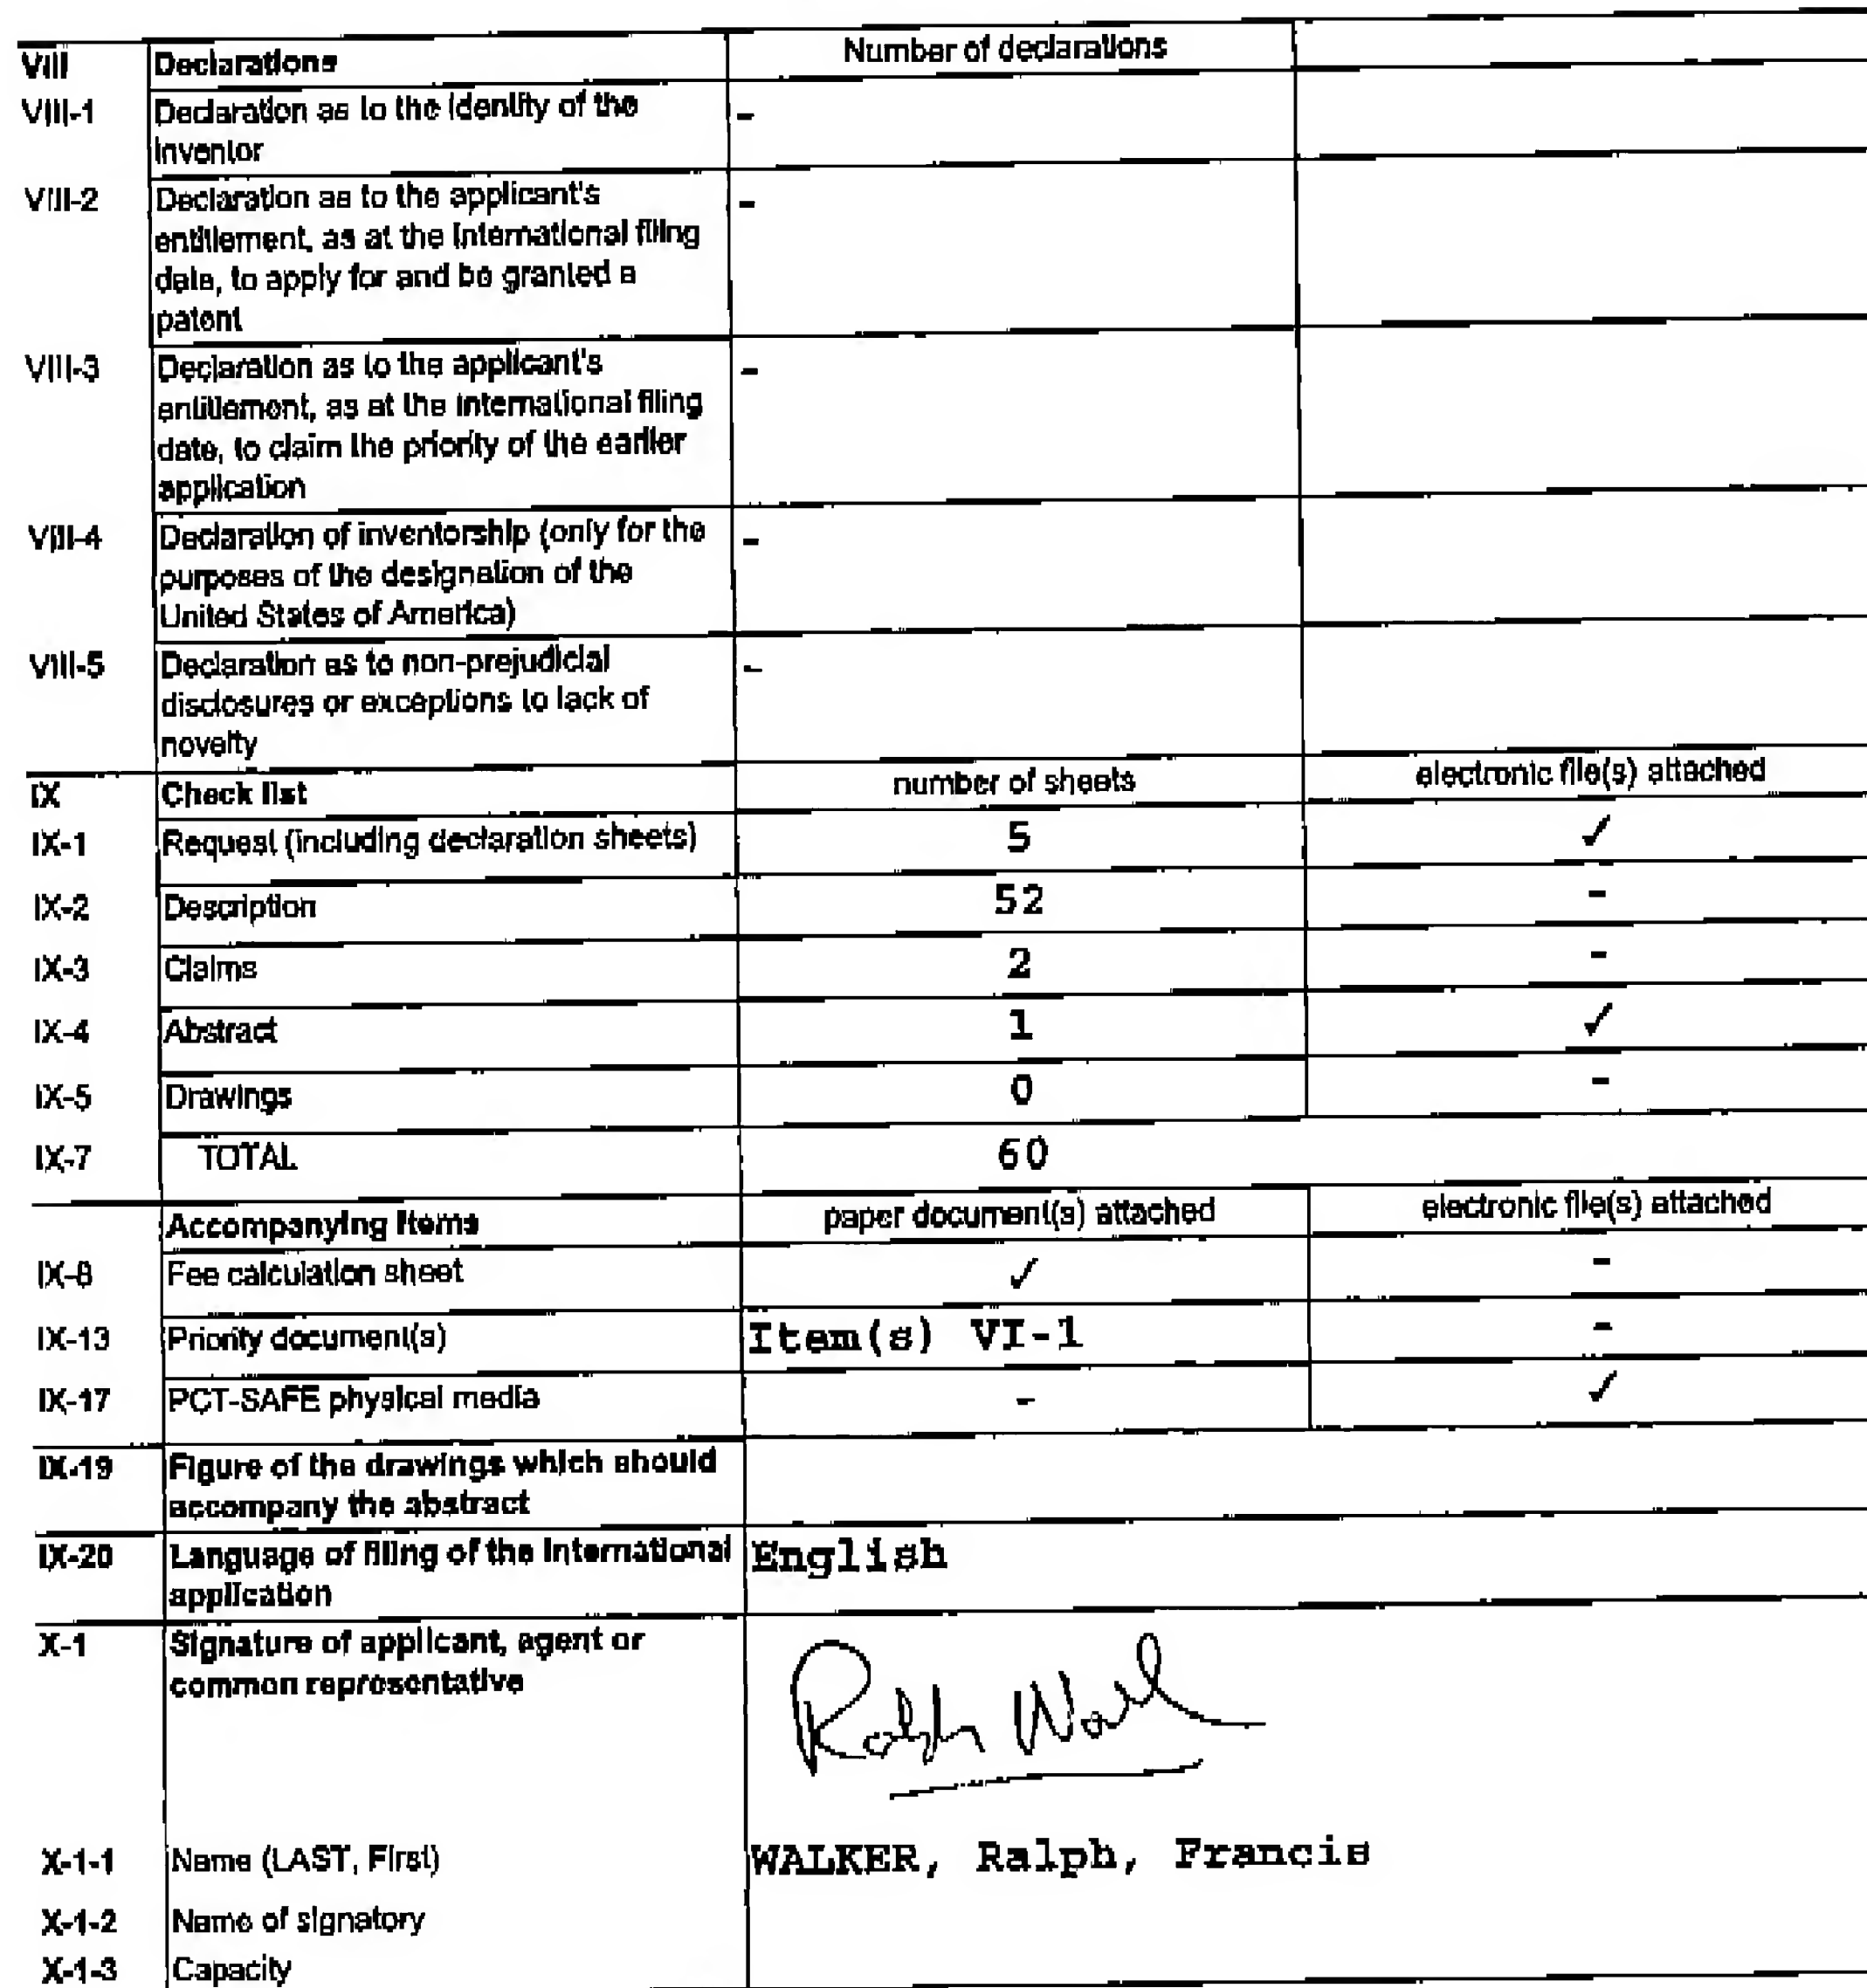 VIII Declarations Number of declarations
VIII-1 Declaration as to the identity of the -
inventor
VIII-2 Declaration as to the applicant's -
entitlement, as at the international filing
date, to apply for and be granted a
patent
VIII-3 Declaration as to the applicant's -
entitlement, as at the international filing
date, to claim the priority of the earlier
application
VIII-4 Declaration of inventorship (only for the -
purposes of the designation of the
United States of America)
VIII-5 Declaration as to non-prejudicial -
disclosures or exceptions to lack of
novelty
IX Check list number of sheets electronic file(s) attached
IX-1 Request (including declaration sheets) 5 ✓
IX-2 Description 52 -
IX-3 Claims 2 -
IX-4 Abstract 1 ✓
IX-5 Drawings 0 -
IX-7 TOTAL 60
Accompanying Items paper document(s) attached electronic file(s) attached
IX-8 Fee calculation sheet ✓ -
IX-13 Priority document(s) Item(s) VI-1 -
IX-17 PCT-SAFE physical media - ✓
IX-19 Figure of the drawings which should
accompany the abstract
IX-20 Language of filing of the international English
application
X-1 Signature of applicant, agent or
common representative
Ralph Wall
X-1-1 Name (LAST, First) WALKER, Ralph, Francis
X-1-2 Name of signatory
X-1-3 Capacity